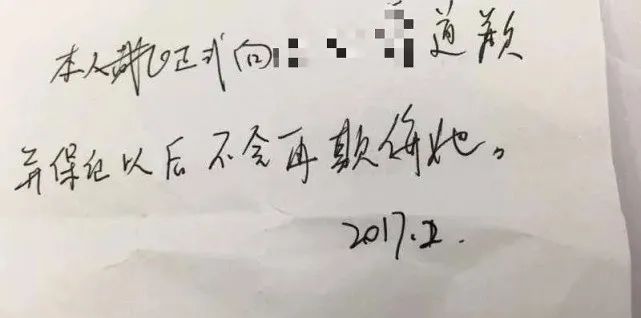 本人诚心正式向 道歉
并保证以后不会再欺侮她。
2017.2.